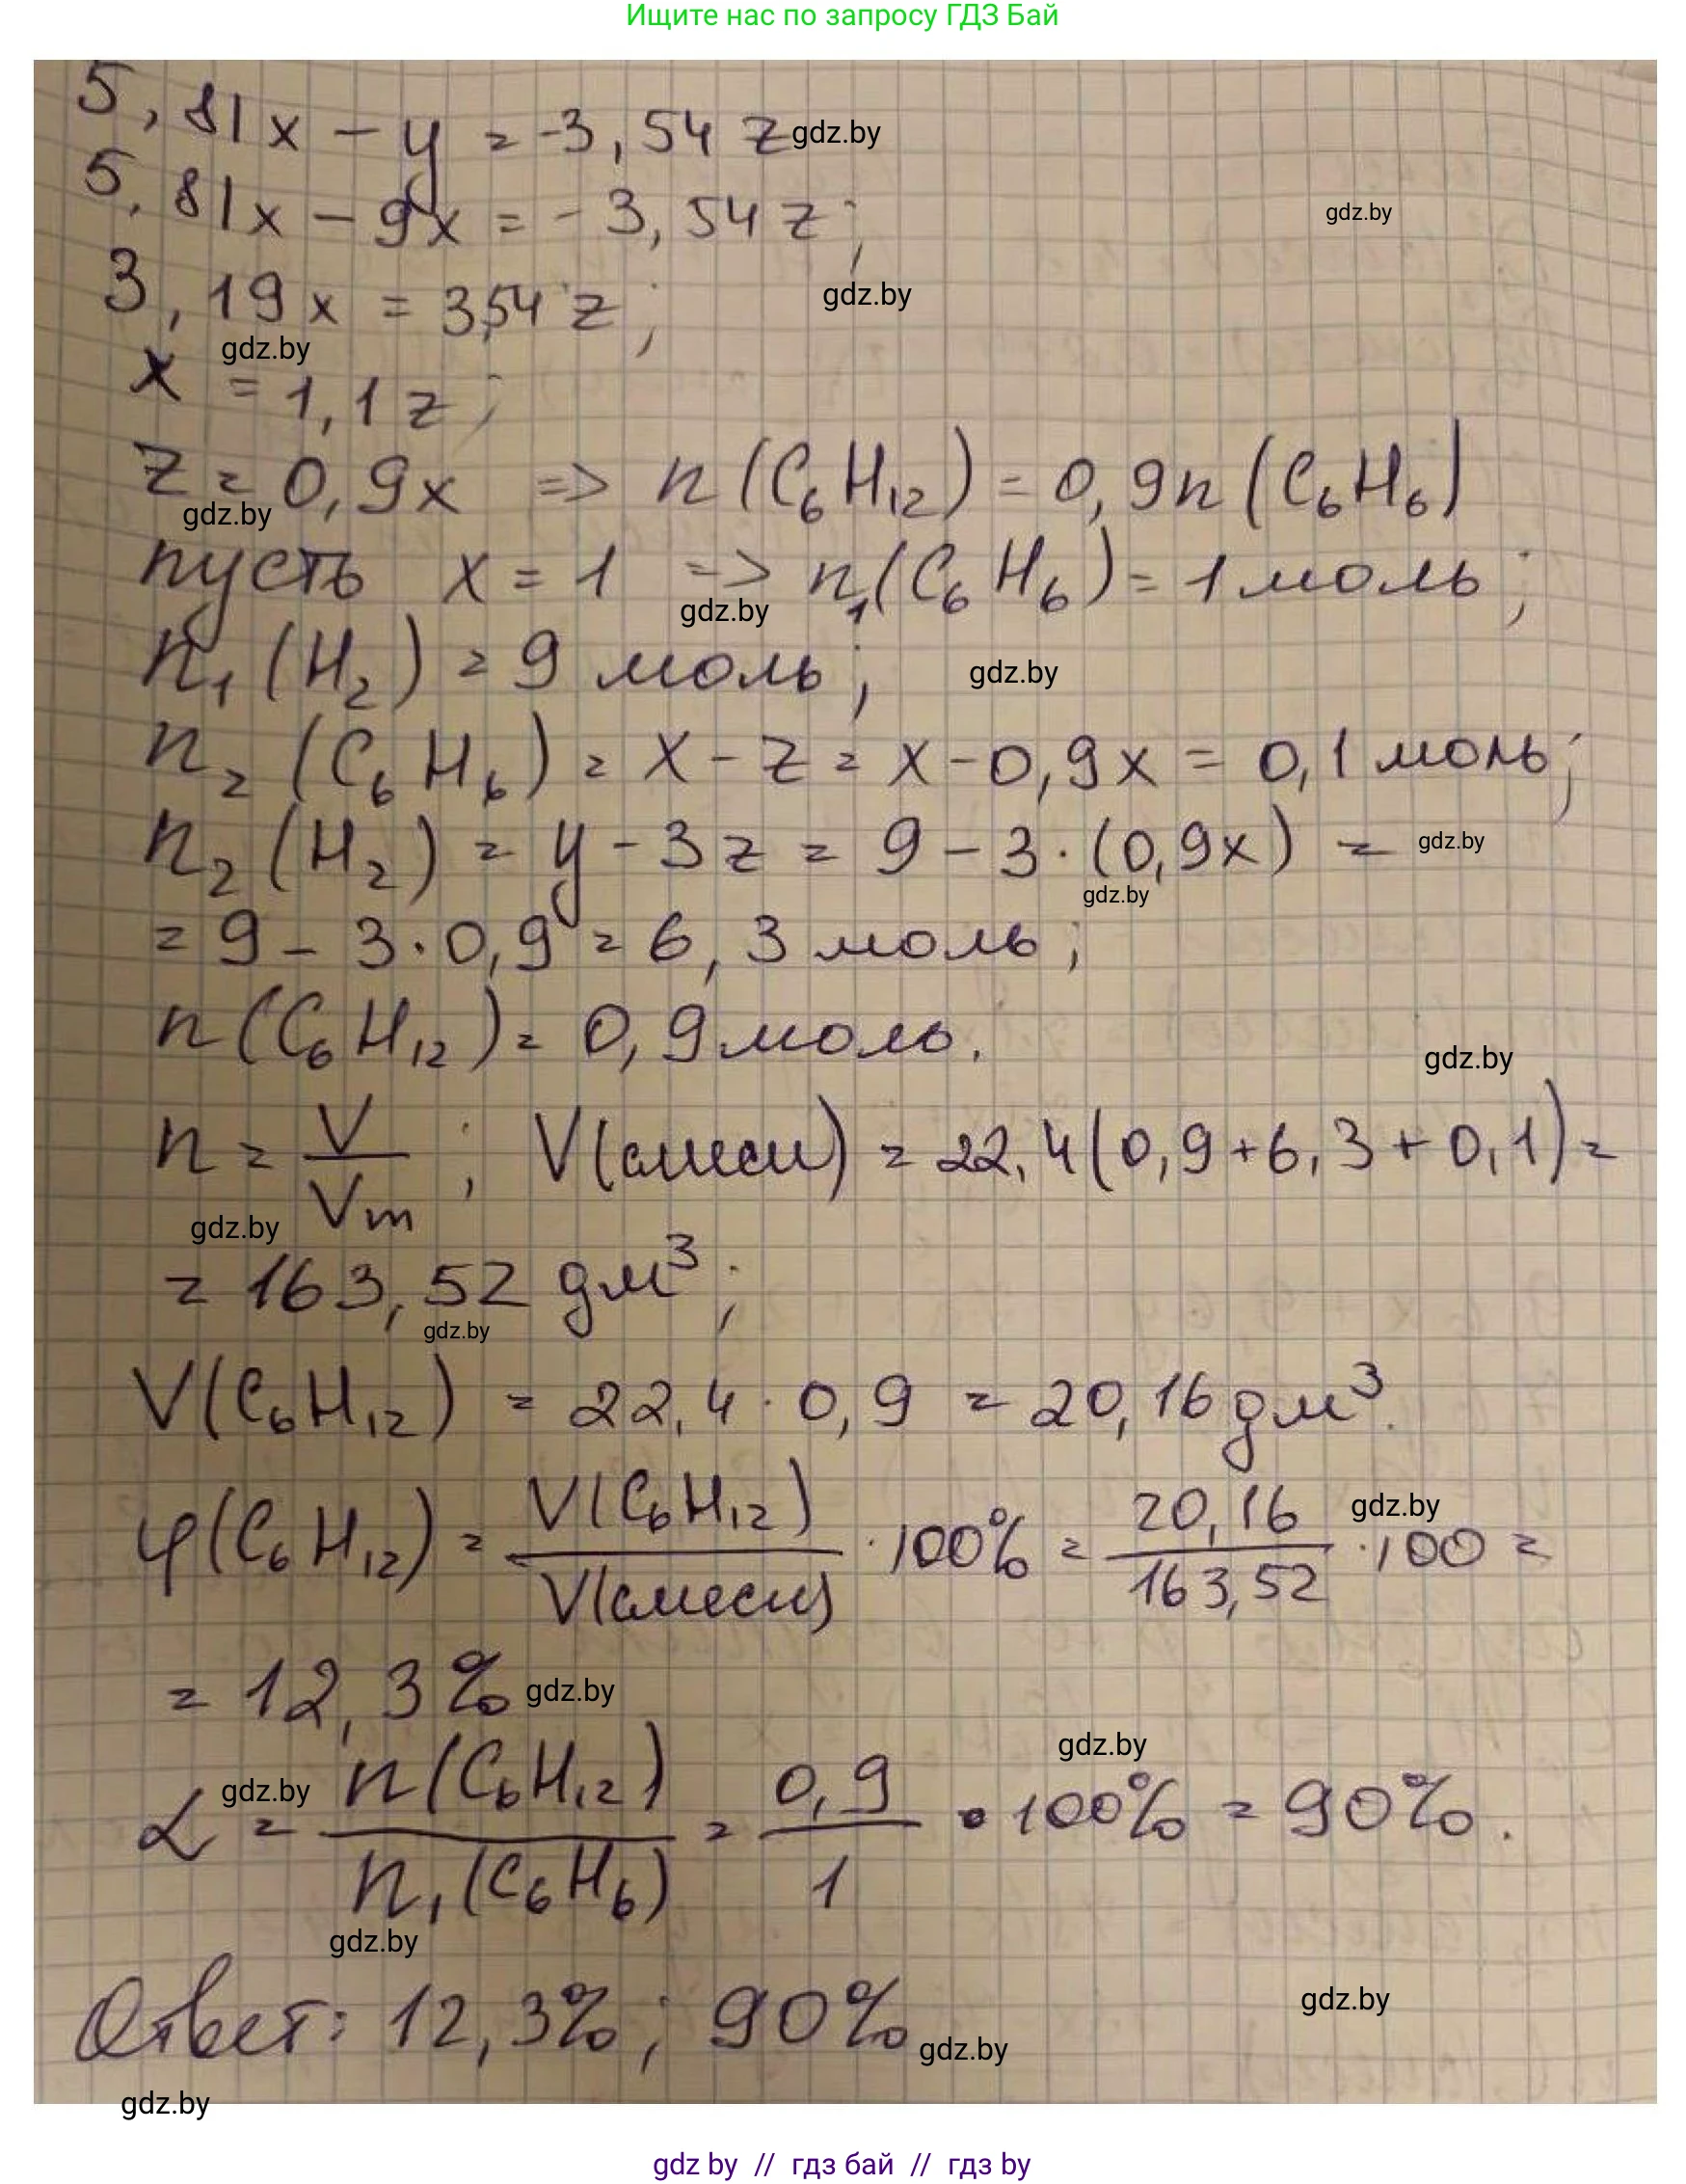 Ищите нас по запросу ГДЗ Бай
5,81x - y = -3,54 z gdz.by
5,81x - 9x = -3,54 z; gdz.by
3,19x = 3,54 z; gdz.by
gdz.by
x = 1,1 z;
z = 0,9x => n(C₆H₁₂) = 0,9n(C₆H₆)
gdz.by
пусть x = 1 => n₁(C₆H₆) = 1 моль;
gdz.by
n₁(H₂) = 9 моль; gdz.by
n₂(C₆H₆) = x - z = x - 0,9x = 0,1 моль;
n₂(H₂) = y - 3z = 9 - 3·(0,9x) = gdz.by
gdz.by
= 9 - 3·0,9 = 6,3 моль;
n(C₆H₁₂) = 0,9 моль.
gdz.by
n = V/Vm; V(смеси) = 22,4(0,9+6,3+0,1) =
gdz.by
= 163,52 дм³;
gdz.by
V(C₆H₁₂) = 22,4 · 0,9 = 20,16 дм³.
φ(C₆H₁₂) = V(C₆H₁₂)/V(смеси) · 100% = 20,16/163,52 · 100 =
gdz.by
= 12,3% gdz.by
gdz.by
gdz.by
α = n(C₆H₁₂)/n₁(C₆H₆) = 0,9/1 · 100% = 90%.
gdz.by
gdz.by
Ответ: 12,3%; 90%
gdz.by
gdz.by
gdz by // гдз бай // гдз by